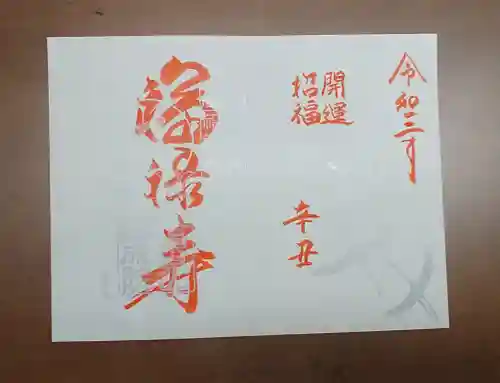 令和三年
開運
招福
辛丑
福禄寿